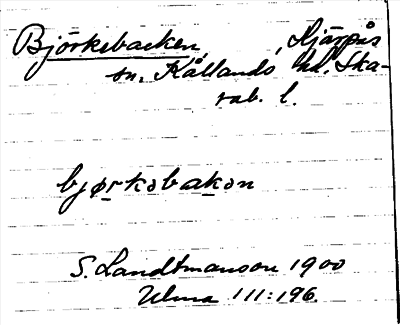 Björkebacken, Hjärpås
sn, Kållands hd, Ska-
rab. l.
bjørkəbakən
S. Landtmanson 1900
Ulma 111:196.